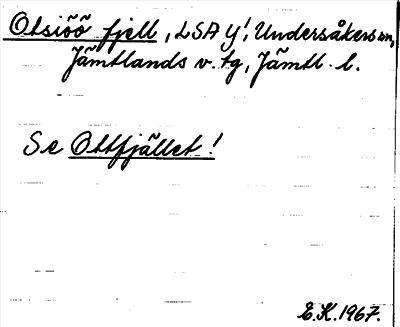 Otsiöö fjell, LSA y!, Undersåkers sn,
Jämtlands v. tg, Jämtl. l.
Se Ottfjället!
E.K. 1967.